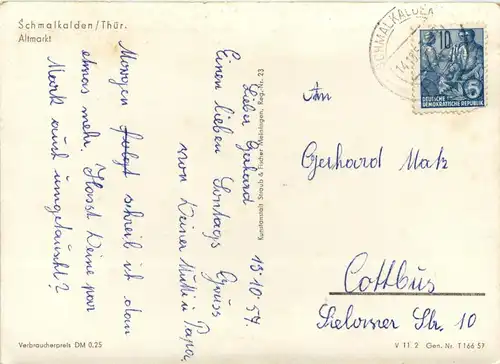 Schmalkalden/Thür.
Altmarkt
13.10.57
Lieber Gerhard
Einen lieben Sonntags Gruss
von Deiner Mutti u Papa,
Morgen folgt schreib ich dann
etwas mehr. Hasst Deine par
Mark auch umgetauscht?
Verbraucherpreis DM 0,25
Kunstanstalt Straub & Fischer Meiningen, Reg.-Nr. 23
SCHMALKALDEN
10
DEUTSCHE
DEMOKRATISCHE REPUBLIK
An
Gerhard Matz
Cottbus
Sielower Str. 10
V 11 2 Gen. Nr. T 166 57